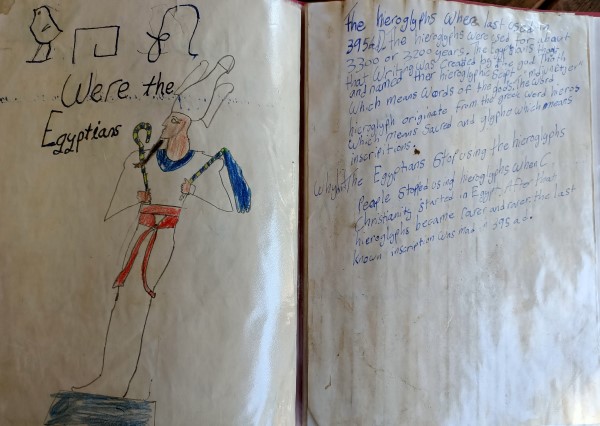 Were the
Egyptians
the hieroglyphs when last used in
395 a.d the hieroglyphs were used for about
3300 or 3200 years. the Egyptians
that writing was created by the god thoth
and named ther hieroglyphic
which means words of the gods. the word
hieroglyph originate from the greek word hieros
which means Sacred and glyphe which means
inscriptions.
Why The Egyptians Stop using the hieroglyphs
People Stoped using hieroglyphs when
Christianity started in Egypt. After that
hieroglyphs became rarer and rarer. the last
known inscription was mad in 395 a.d.